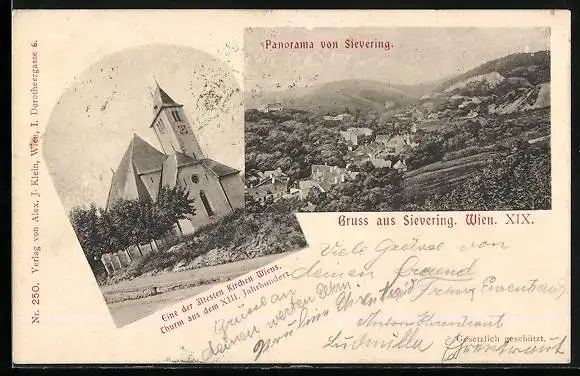 Panorama von Sievering.
Nr. 250. Verlag von Alex. J. Klein, Wien, I. Dorotheergasse 6.
Gruss aus Sievering. Wien. XIX.
Eine der ältesten Kirchen Wiens,
Thurm aus dem XIII. Jahrhundert.
Viele Grüsse von
deinen Freund
Franz
Grüsse an
deinen werten Eltern.
Anton Ehrentraut
Ludmilla Ehrentraut
Gesetzlich geschützt.